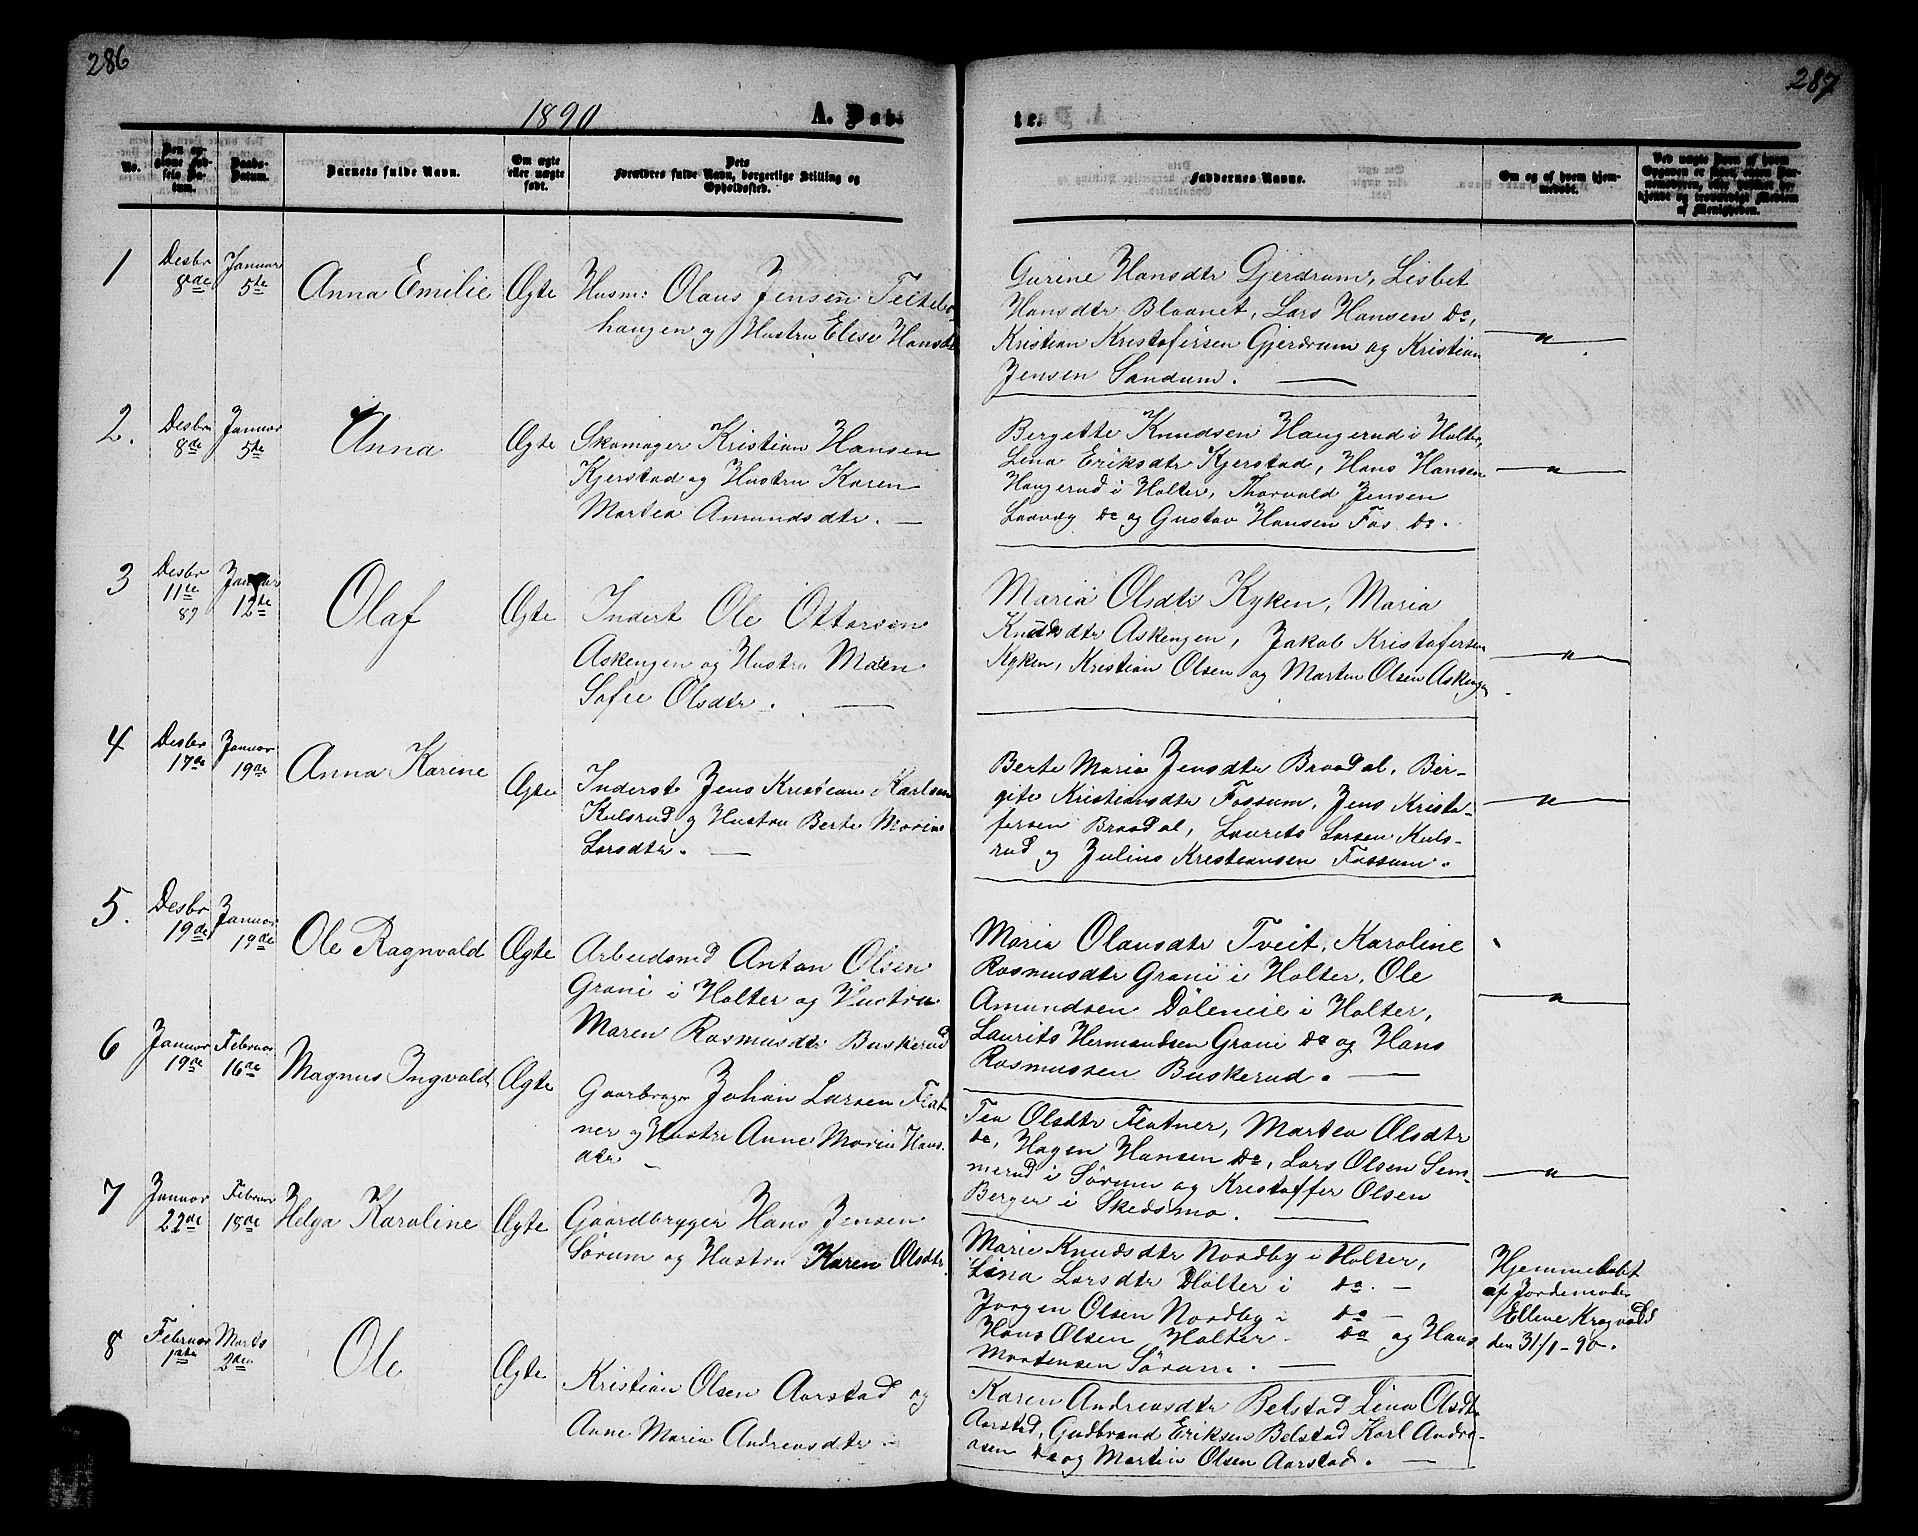 286
287
1890
A. Døb-
te.
No.
Den op-
givne Fød-
sels Da-
tum.
Daabs-
Datum.
Barnets fulde Navn.
Om ægte
eller uægte
født.
Dets
Forældres fulde Navn, borgerlige Stilling og
Opholdssted.
Faddernes Navne.
Om og af hvem hjem-
medøbt.
1
Desbr
8de
Januar
5te
Anna Emilie
Ægte
Husm: Olaus Jensen Teiteber-
haugen og Hustru Elise Hansdtr
Gurine Hansdtr Gjerdrum, Lisbet
Hansdtr Blaanet, Lars Hansen Do,
Kristian Kristofersen Gjerdrum og Kristian
Jensen Sandum.
2.
Desbr
8de
Januar
5te
Anna
Ægte
Skomager Kristian Hansen
Kjerstad og Hustru Karen
Martea Amundsdtr.
Bergette Knudsen Haugerud i Holter,
Lina Eriksdtr Kjerstad, Hans Hansen
Haugerud i Holter, Thorvald Jensen
Laaveg do og Gustav Hansen Fos do.
3
Desbr
11te
89
Januar
12te
Olaf
Ægte
Inderst Ole Ottersen
Askengen og Hustru Maren
Sofie Olsdtr.
Maria Olsdtr Kyken, Maria
Knudsdtr Askengen, Jakob Kristofersen
Kyken, Kristian Olsen og Martin Olsen Askengen
4
Desbr
17de
Januar
19de
Anna Karine
Ægte
Inderst Jens Kristian Karlsen
Kulsrud og Hustru Berte Marie
Larsdtr.
Berte Maria Jensdtr Braadal, Bir-
gite Kristiansdtr Fossum, Jens Kristo-
fersen Braadal, Laurits Larsen Kuls-
rud og Julius Kristiansen Fossum.
5.
Desbr
19de
Januar
19de
Ole Ragnvald
Ægte
Arbeidsmd Anton Olsen
Grani i Holter og Hustru
Maren Rasmusdtr Buskerud
Maria Olausdtr Tveit, Karoline
Rasmusdtr Grani i Holter, Ole
Amundsen Døleneie i Holter,
Laurits Hermandsen Grani do og Hans
Rasmussen Buskerud.
6
Januar
19de
Februar
16de
Magnus Ingvald
Ægte
Gaarbruger Johan Larsen Flat-
ner og Hustru Anne Marie Hans-
dtr
Tea Olsdtr Flatner, Martea Olsdtr
do, Hagen Hansen do, Lars Olsen Sem-
merud i Sørum og Kristoffer Olsen
Berger i Skedsmo.
7
Januar
22de
Februar
18de
Helga Karoline
Ægte
Gaardbryger Hans Jensen
Sørum og Hustru Karen Olsdtr.
Marie Knudsdtr Nordby i Holter,
Lina Larsdtr Holter i do.
Jørgen Olsen Nordby i do
Hans Olsen Holter do og Hans
Mortensen Sørum.
Hjemmedøbt
af Jordemoder
Elline Kragvold
den 31/1-90.
8
Februar
1ste
Marts
2den
Ole
Ægte
Kristian Olsen Aarstad og
Anne Maria Andreasdtr.
Karen Andreasdtr Belstad Lina Olsdtr
Aarstad, Gudbrand Eriksen Belstad Karl Andre-
asen do og Martin Olsen Aarstad.